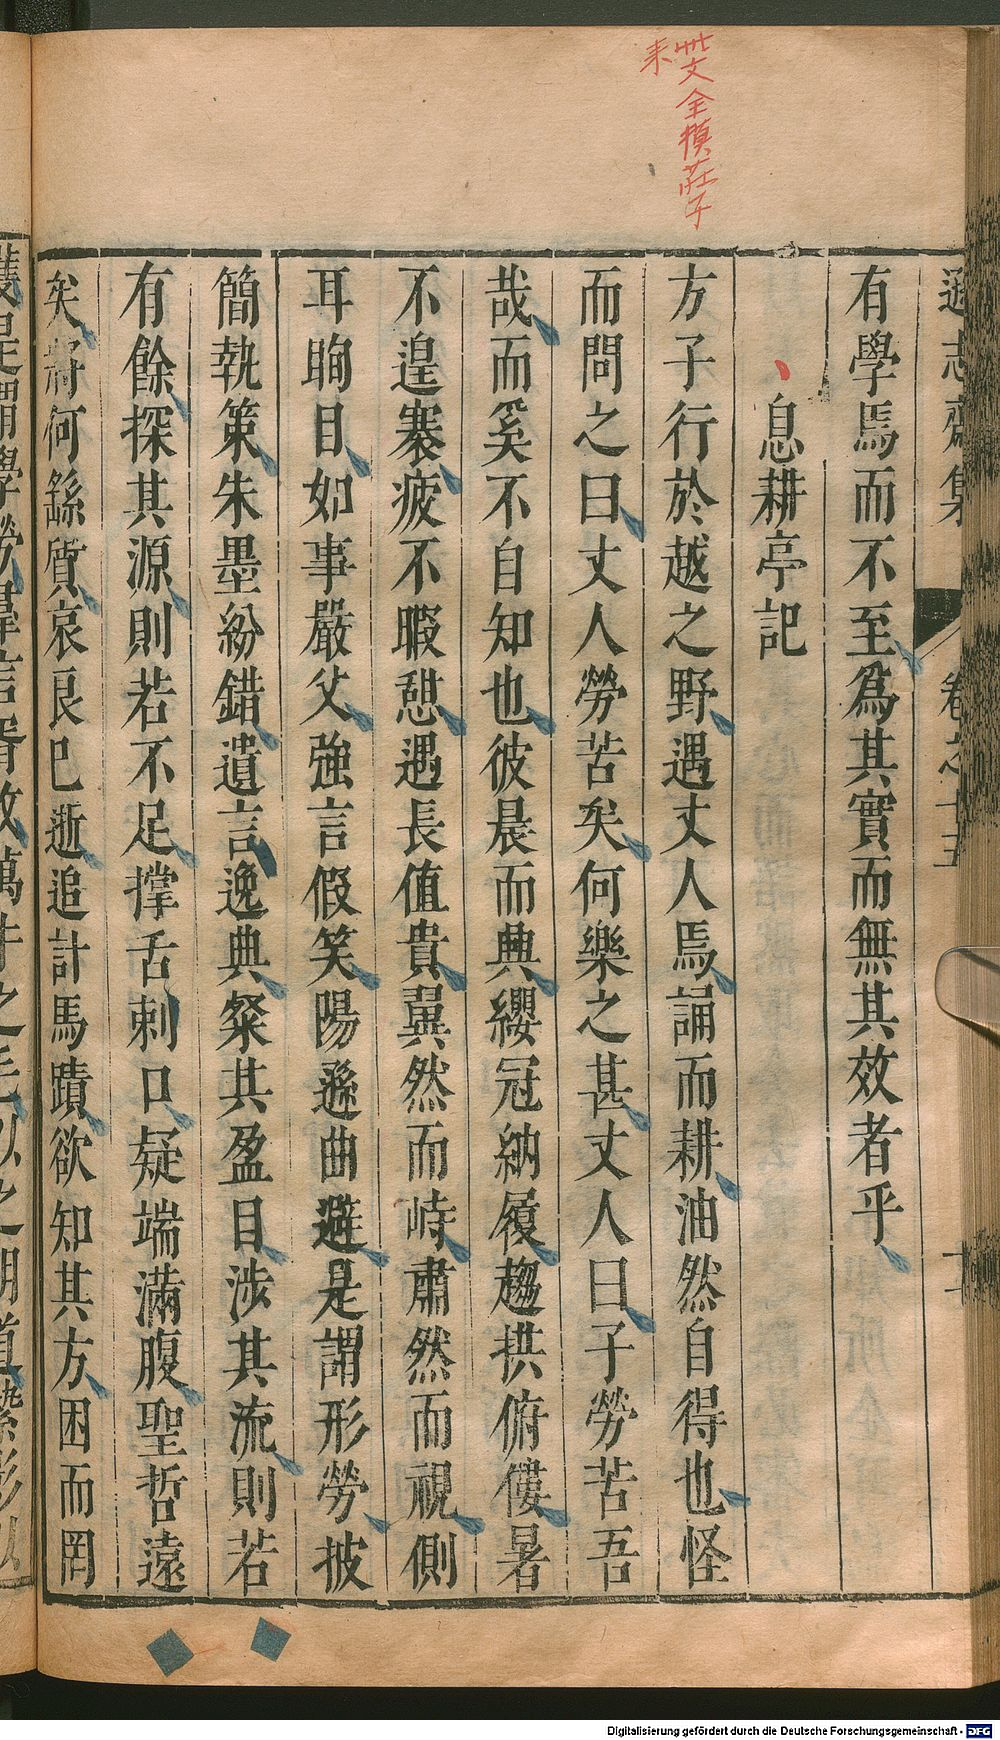 此文全摸莊子
来
遜志齋集
卷之十五
十
有學焉而不至爲其實而無其效者乎
息耕亭記
方子行於越之野遇丈人焉誦而耕油然自得也怪
而問之曰丈人勞苦矣何樂之甚丈人曰子勞苦吾
哉而奚不自知也彼晨而興纓冠納履趨拱俯僂暑
不遑褰疲不暇憩遇長值貴翼然而峙肅然而視側
耳眴目如事嚴父強言假笑陽遜曲避是謂形勞披
簡執策朱墨紛錯遺言逸典粲其盈目涉其流則若
有餘探其源則若不足撑舌刺口疑端滿腹聖哲遠
矣將何繇質哀哀已逝追計焉蹟欲知其方困而罔
Digitalisierung gefördert durch die Deutsche Forschungsgemeinschaft - DFG